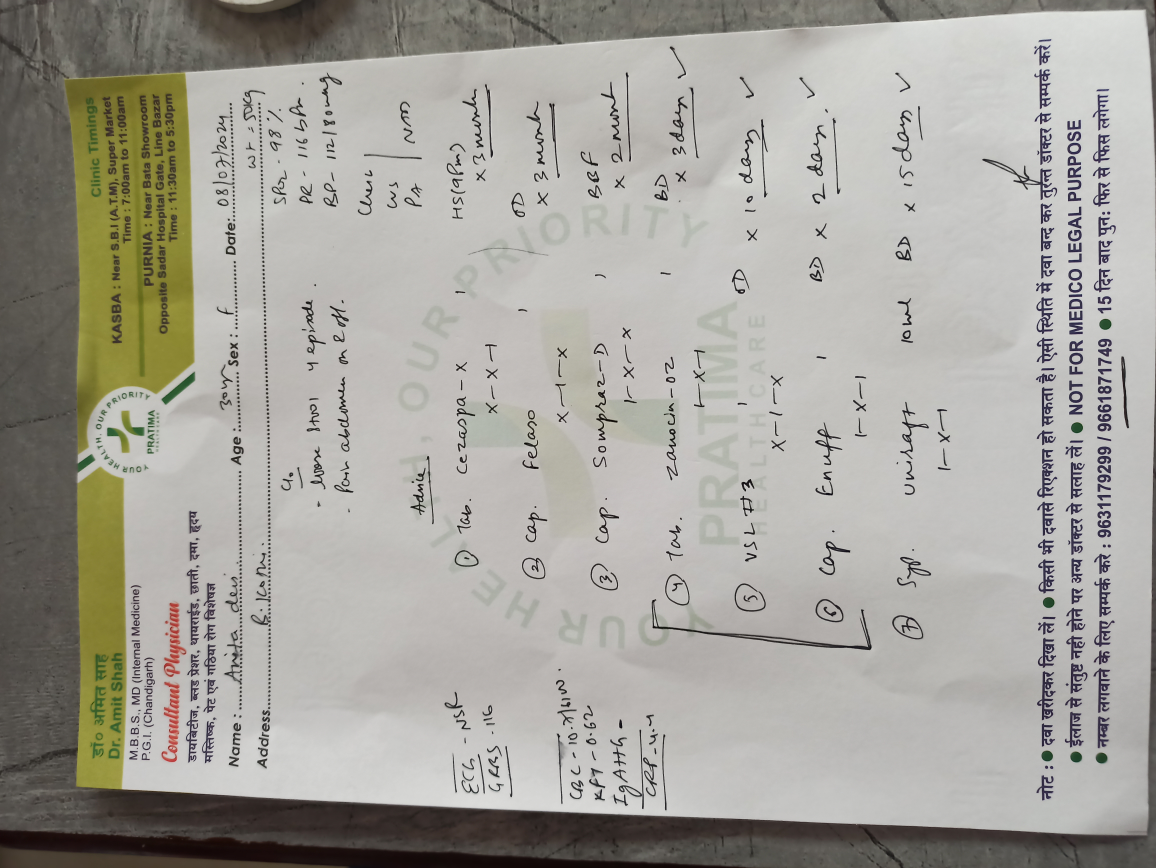 डॉ० अमित साह
Dr. Amit Shah
M.B.B.S., MD (Internal Medicine)
P.G.I. (Chandigarh)
Consultant Physician
डायबिटीज, ब्लड प्रेशर, थायराईड, छाती, दमा, हृदय
मस्तिष्क, पेट एवं गठिया रोग विशेषज्ञ
YOUR HEALTH, OUR PRIORITY
PRATIMA
Clinic Timings
KASBA : Near S.B.I (A.T.M), Super Market
Time : 7:00am to 11:00am
PURNIA : Near Bata Showroom
Opposite Sadar Hospital Gate, Line Bazar
Time : 11:30am to 5:30pm
Name : Anita devi Age : 30yr Sex : F Date: 08/07/2024
Address B. Kothi. wt = 50kg
SPO2 - 98%
PR - 116 bpm.
BP - 112/80mmHg
Chest
CVS
PA NAD
C/o
- loose stool 4 episode.
- Pain abdomen on & off.
ECG - NSR
GRBS - 116
CBC - 10.7/
KFT - 0.62
CRP - 4.4
Advice
① Tab. Cezaspa-X 1 HS(9pm)
x-x-1 x 3 month
② Cap. Felaso 1 OD
x-1-x x 3 month
③ Cap. Sompraz-D 1 BBF
1-x-x x 2 month
④ Tab. Zanocin-OZ 1 BD
1-x-1 x 3 days ✓
⑤ VSL#3 1 OD x 10 days ✓
x-1-x
⑥ Cap. Enuff 1 BD x 2 days. ✓
1-x-1
⑦ Syp. 10ml BD x 15 days ✓
1-x-1
YOUR HEALTH, OUR PRIORITY
PRATIMA
HEALTH CARE
नोट : ● दवा खरीदकर दिखा लें। ● किसी भी दवासे रिएक्शन हो सकता है। ऐसी स्थिति में दवा बन्द कर तुरन्त डॉक्टर से सम्पर्क करें।
● ईलाज से संतुष्ट नही होने पर अन्य डॉक्टर से सलाह लें। ● NOT FOR MEDICO LEGAL PURPOSE
● नम्बर लगवाने के लिए सम्पर्क करे : 9631179299 / 9661871749 ● 15 दिन बाद पुनः फिर से फिस लगेगा।